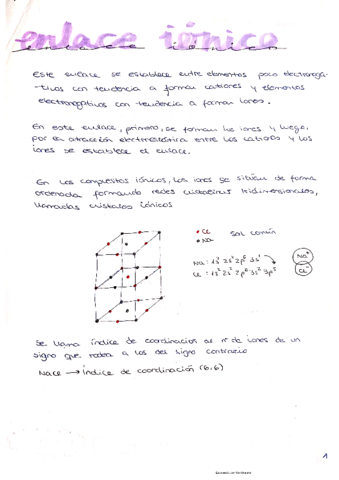 enlace iónico
Este enlace se establece entre elementos poco electronega-
tivos con tendencia a formar cationes y elementos
electronegativos con tendencia a formar iones.
En este enlace, primero, se forman los iones y luego,
por la atracción electrostática entre los cationes y los
iones se establece el enlace.
En los compuestos iónicos, los iones se sitúan de forma
ordenada formando redes cristalinas tridimensionales,
llamadas cristales iónicos
• Cl
• Na
Sal común
Na: 1s² 2s² 2p⁶ 3s¹
Cl: 1s² 2s² 2p⁶ 3s² 3p⁵
Na⁺
Cl⁻
Se llama índice de coordinación al nº de iones de un
signo que rodea a los del signo contrario
NaCl → Índice de coordinación (6,6)
1